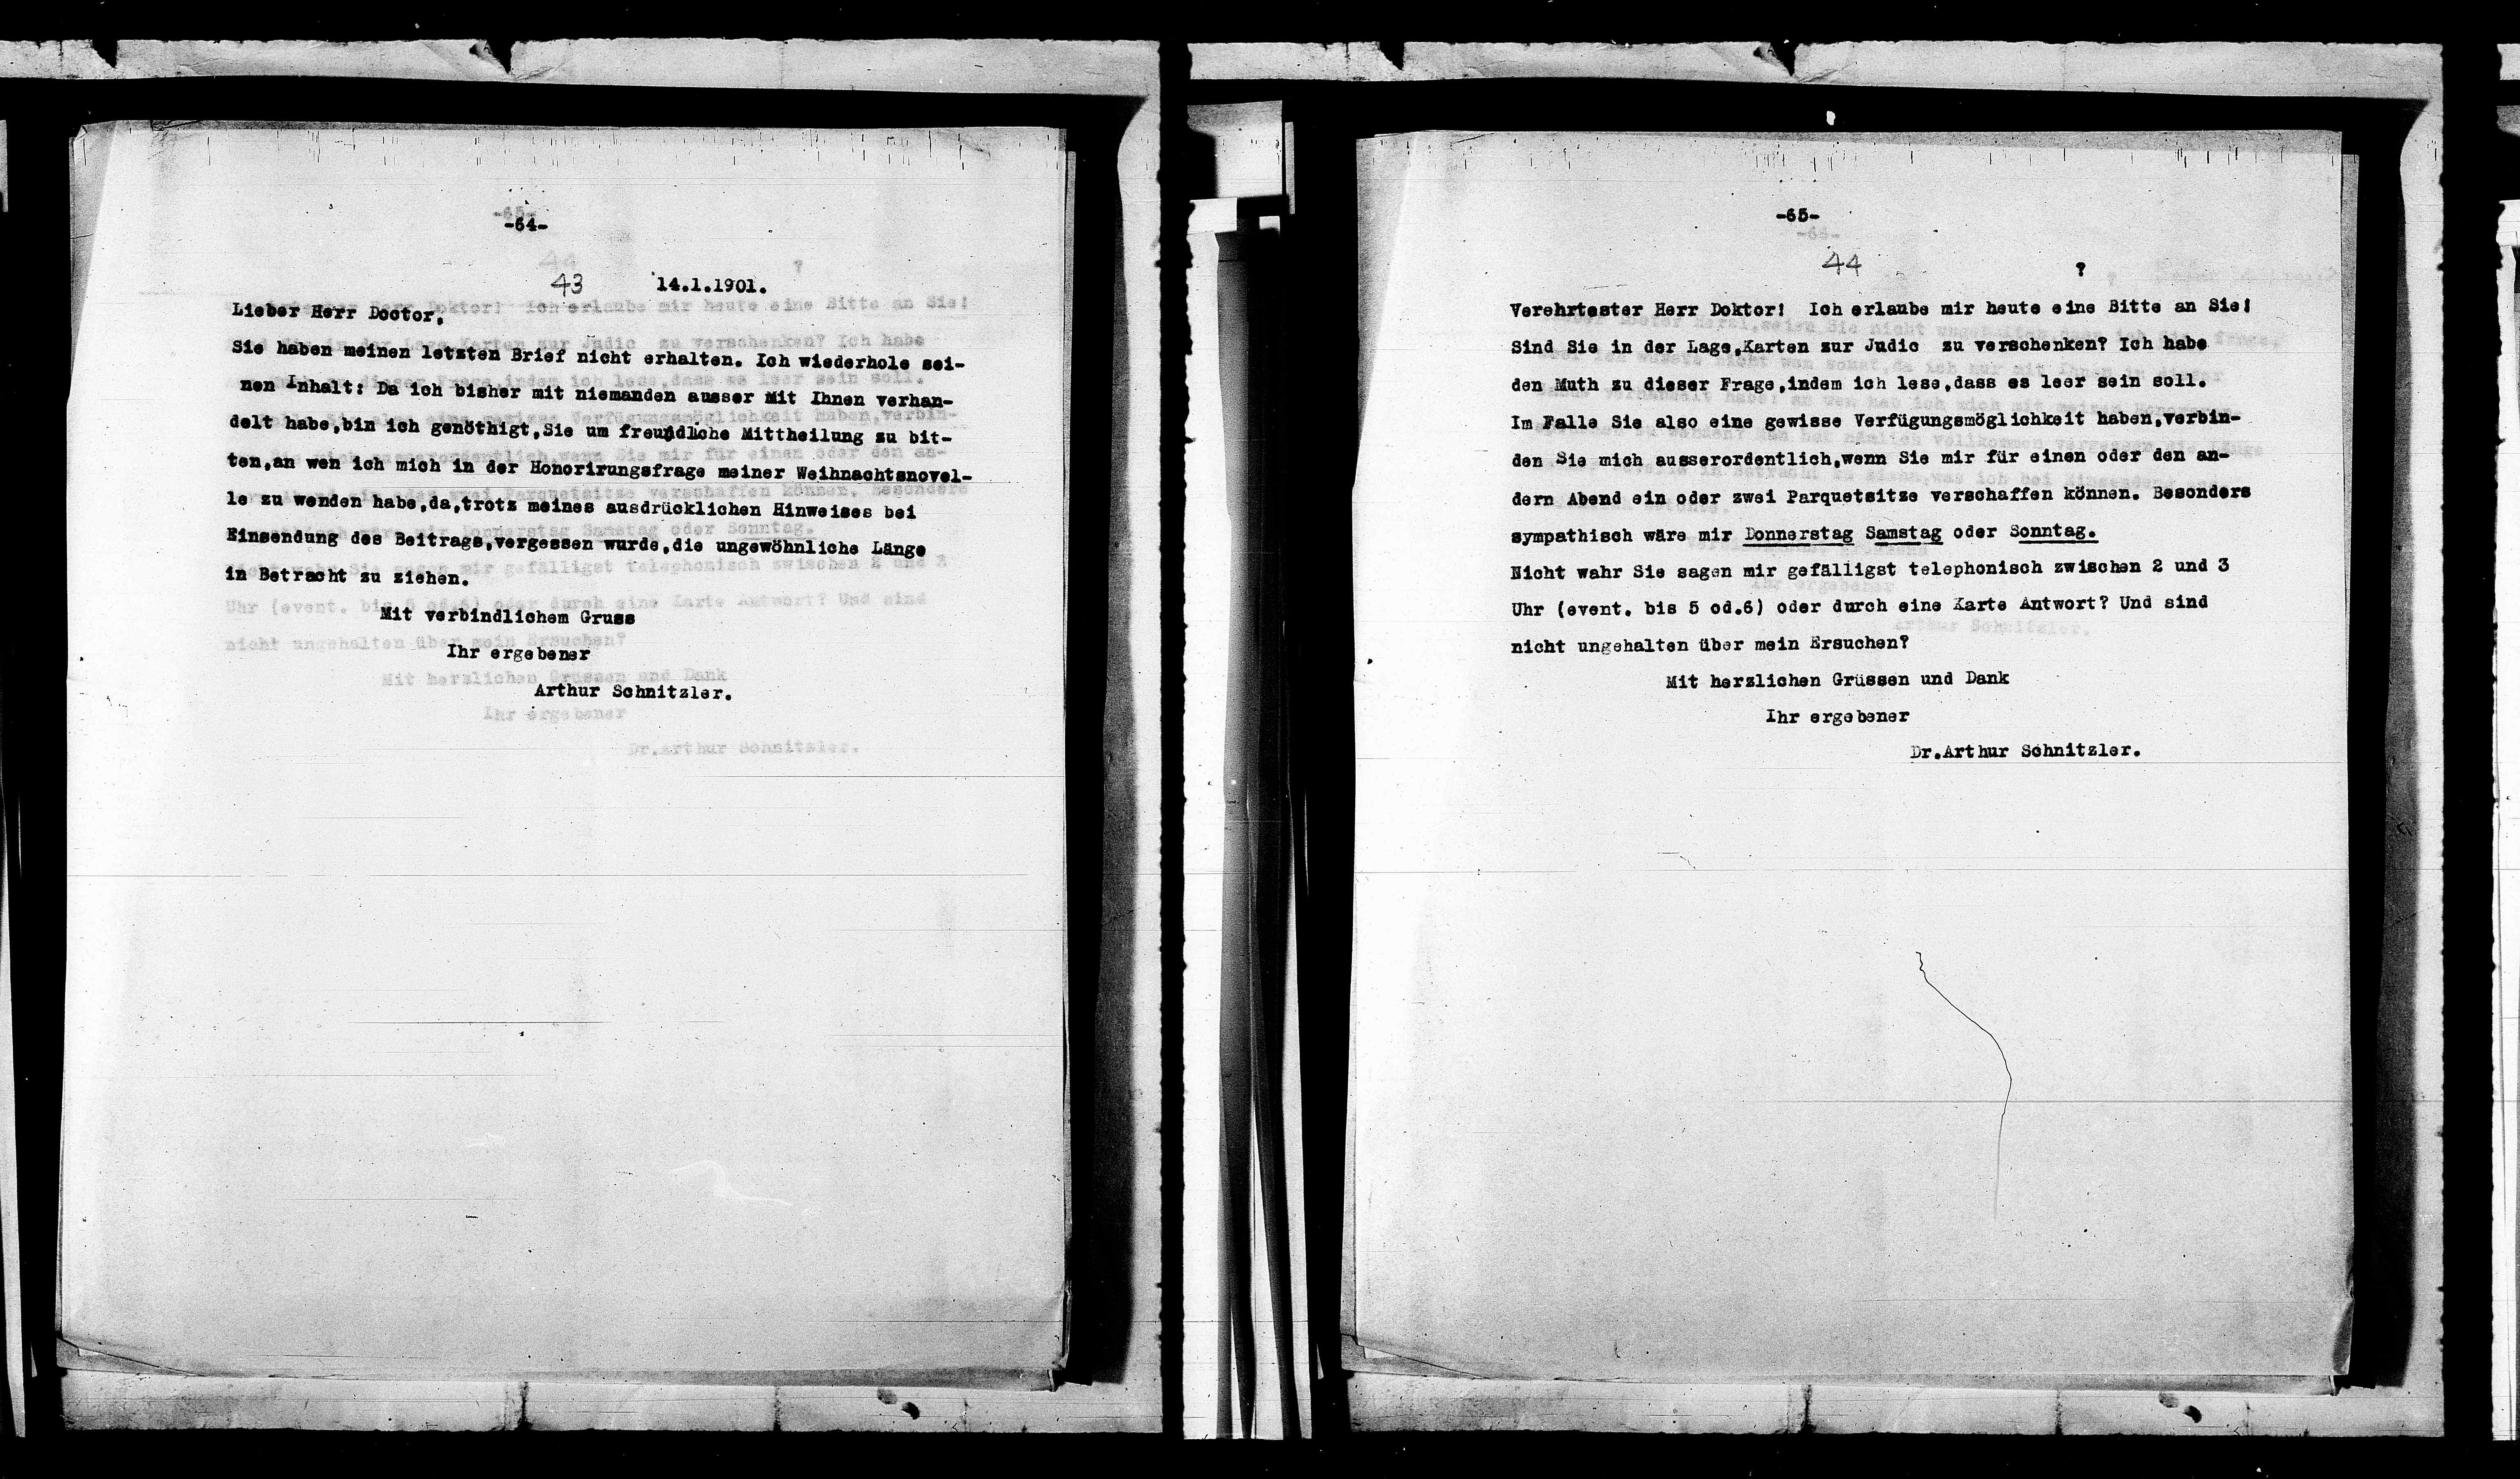 -64-
43 14.1.1901.
Lieber Herr Doctor,
Sie haben meinen letzten Brief nicht erhalten. Ich wiederhole sei-
nen Inhalt: Da ich bisher mit niemanden ausser mit Ihnen verhan-
delt habe,bin ich genöthigt,Sie um freundliche Mittheilung zu bit-
ten,an wen ich mich in der Honorirungsfrage meiner Weihnachtsnovel-
le zu wenden habe,da,trotz meines ausdrücklichen Hinweises bei
Einsendung des Beitrags,vergessen wurde,die ungewöhnliche Länge
in Betracht zu ziehen.
Mit verbindlichem Gruss
Ihr ergebener
Arthur Schnitzler.
-65-
44 ?
Verehrtester Herr Doktor! Ich erlaube mir heute eine Bitte an Sie!
Sind Sie in der Lage,Karten zur Judic zu verschenken? Ich habe
den Muth zu dieser Frage,indem ich lese,dass es leer sein soll.
Im Falle Sie also eine gewisse Verfügungsmöglichkeit haben,verbin-
den Sie mich ausserordentlich,wenn Sie mir für einen oder den an-
dern Abend ein oder zwei Parquetsitze verschaffen können. Besonders
sympathisch wäre mir Donnerstag Samstag oder Sonntag.
Nicht wahr Sie sagen mir gefälligst telephonisch zwischen 2 und 3
Uhr (event. bis 5 od.6) oder durch eine Karte Antwort? Und sind
nicht ungehalten über mein Ersuchen?
Mit herzlichen Grüssen und Dank
Ihr ergebener
Dr.Arthur Schnitzler.